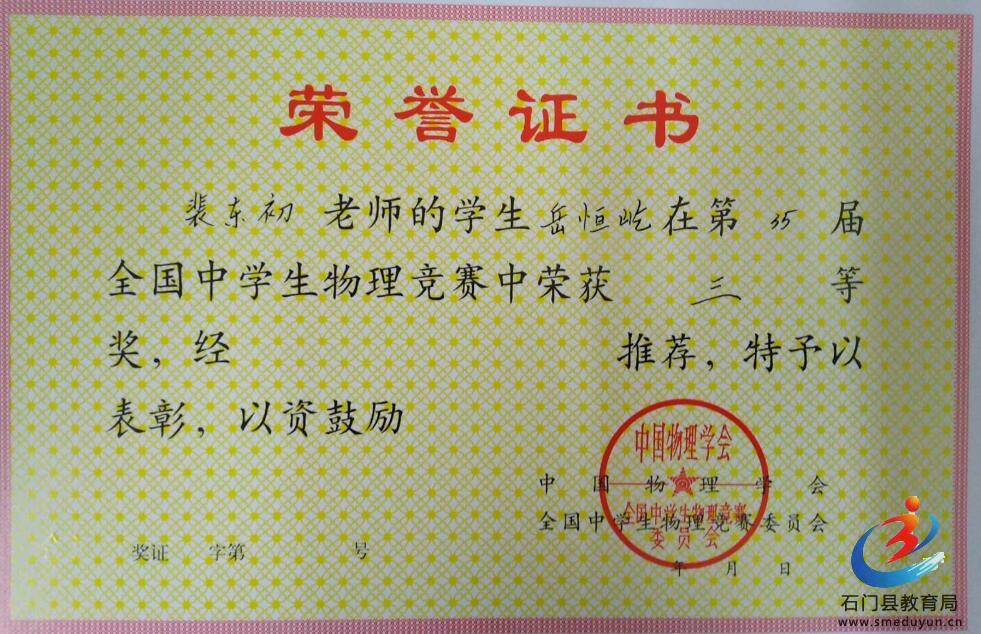 荣誉证书
裴东初 老师的学生岳恒屹在第 35 届
全国中学生物理竞赛中荣获 三 等
奖，经 推荐，特予以
表彰，以资鼓励
中国物理学会
中国物理学会
全国中学生物理竞赛
委员会
全国中学生物理竞赛委员会
奖证 字第 号
年 月 日
石门县教育局
www.smeduyun.cn